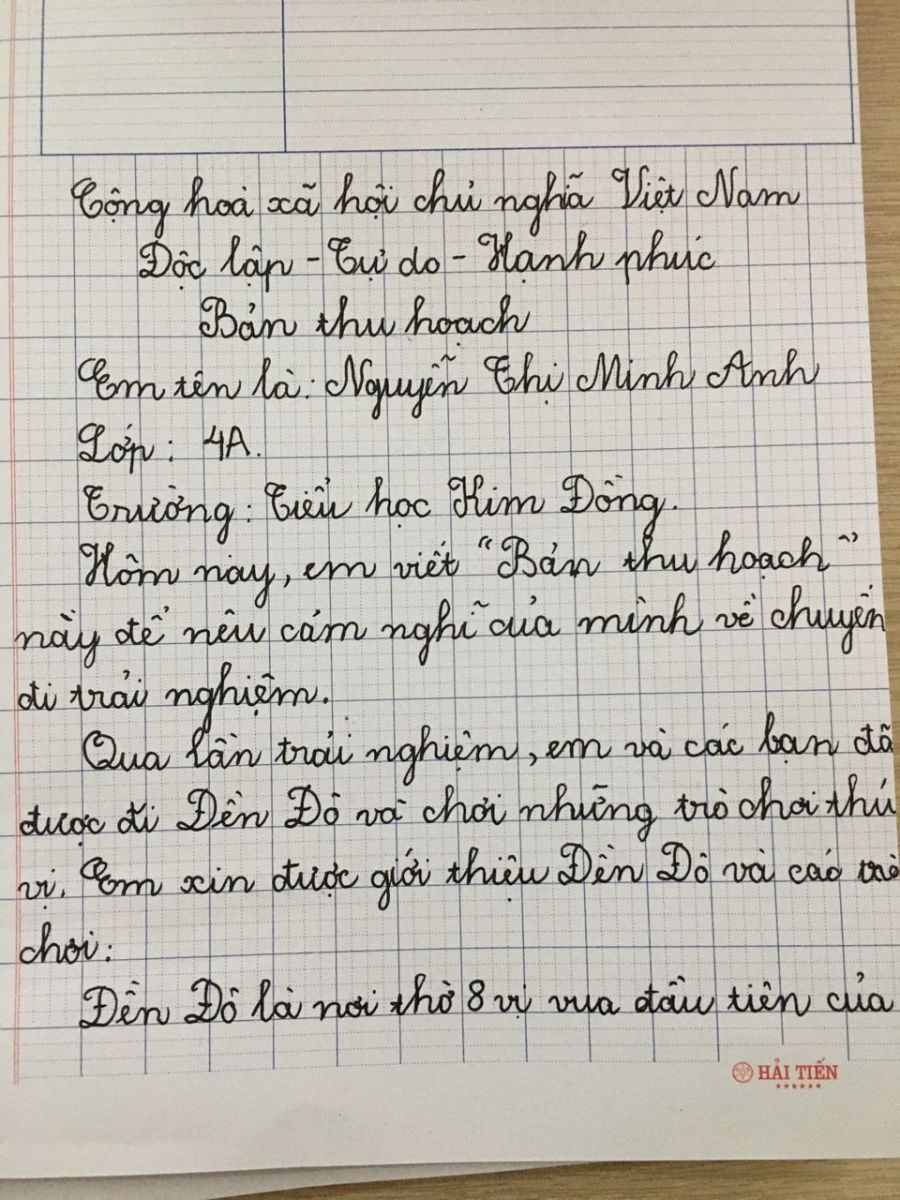 Cộng hoà xã hội chủ nghĩa Việt Nam
Độc lập - Tự do - Hạnh phúc
Bản thu hoạch
Em tên là: Nguyễn Thị Minh Anh
Lớp: 4A.
Trường: Tiểu học Kim Đồng.
Hôm nay, em viết "Bản thu hoạch"
này để nêu cảm nghĩ của mình về chuyến
đi trải nghiệm.
Qua lần trải nghiệm, em và các bạn đã
được đi Đền Đô và chơi những trò chơi thú
vị. Em xin được giới thiệu Đền Đô và các trò
chơi:
Đền Đô là nơi thờ 8 vị vua đầu tiên của
HẢI TIẾN